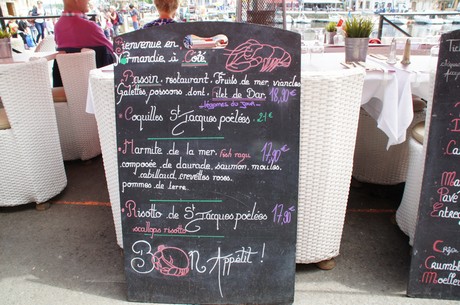 Bienvenue en
Normandie, à Côté
Bassin, restaurant. Fruits de mer, viandes
Galettes, poissons, dont: Filet de Dar.
légumes du jour
18,90€
Coquilles St Jacques poêlées. 21€
Marmite de la mer. Fish ragu 17,90€
composée de daurade, saumon, moules,
cabillaud, crevettes roses.
pommes de terre.
Risotto de St Jacques poêlées 17,90€
scallops risotto
Bon Appétit!
Entre
Crumbl
Moelleu